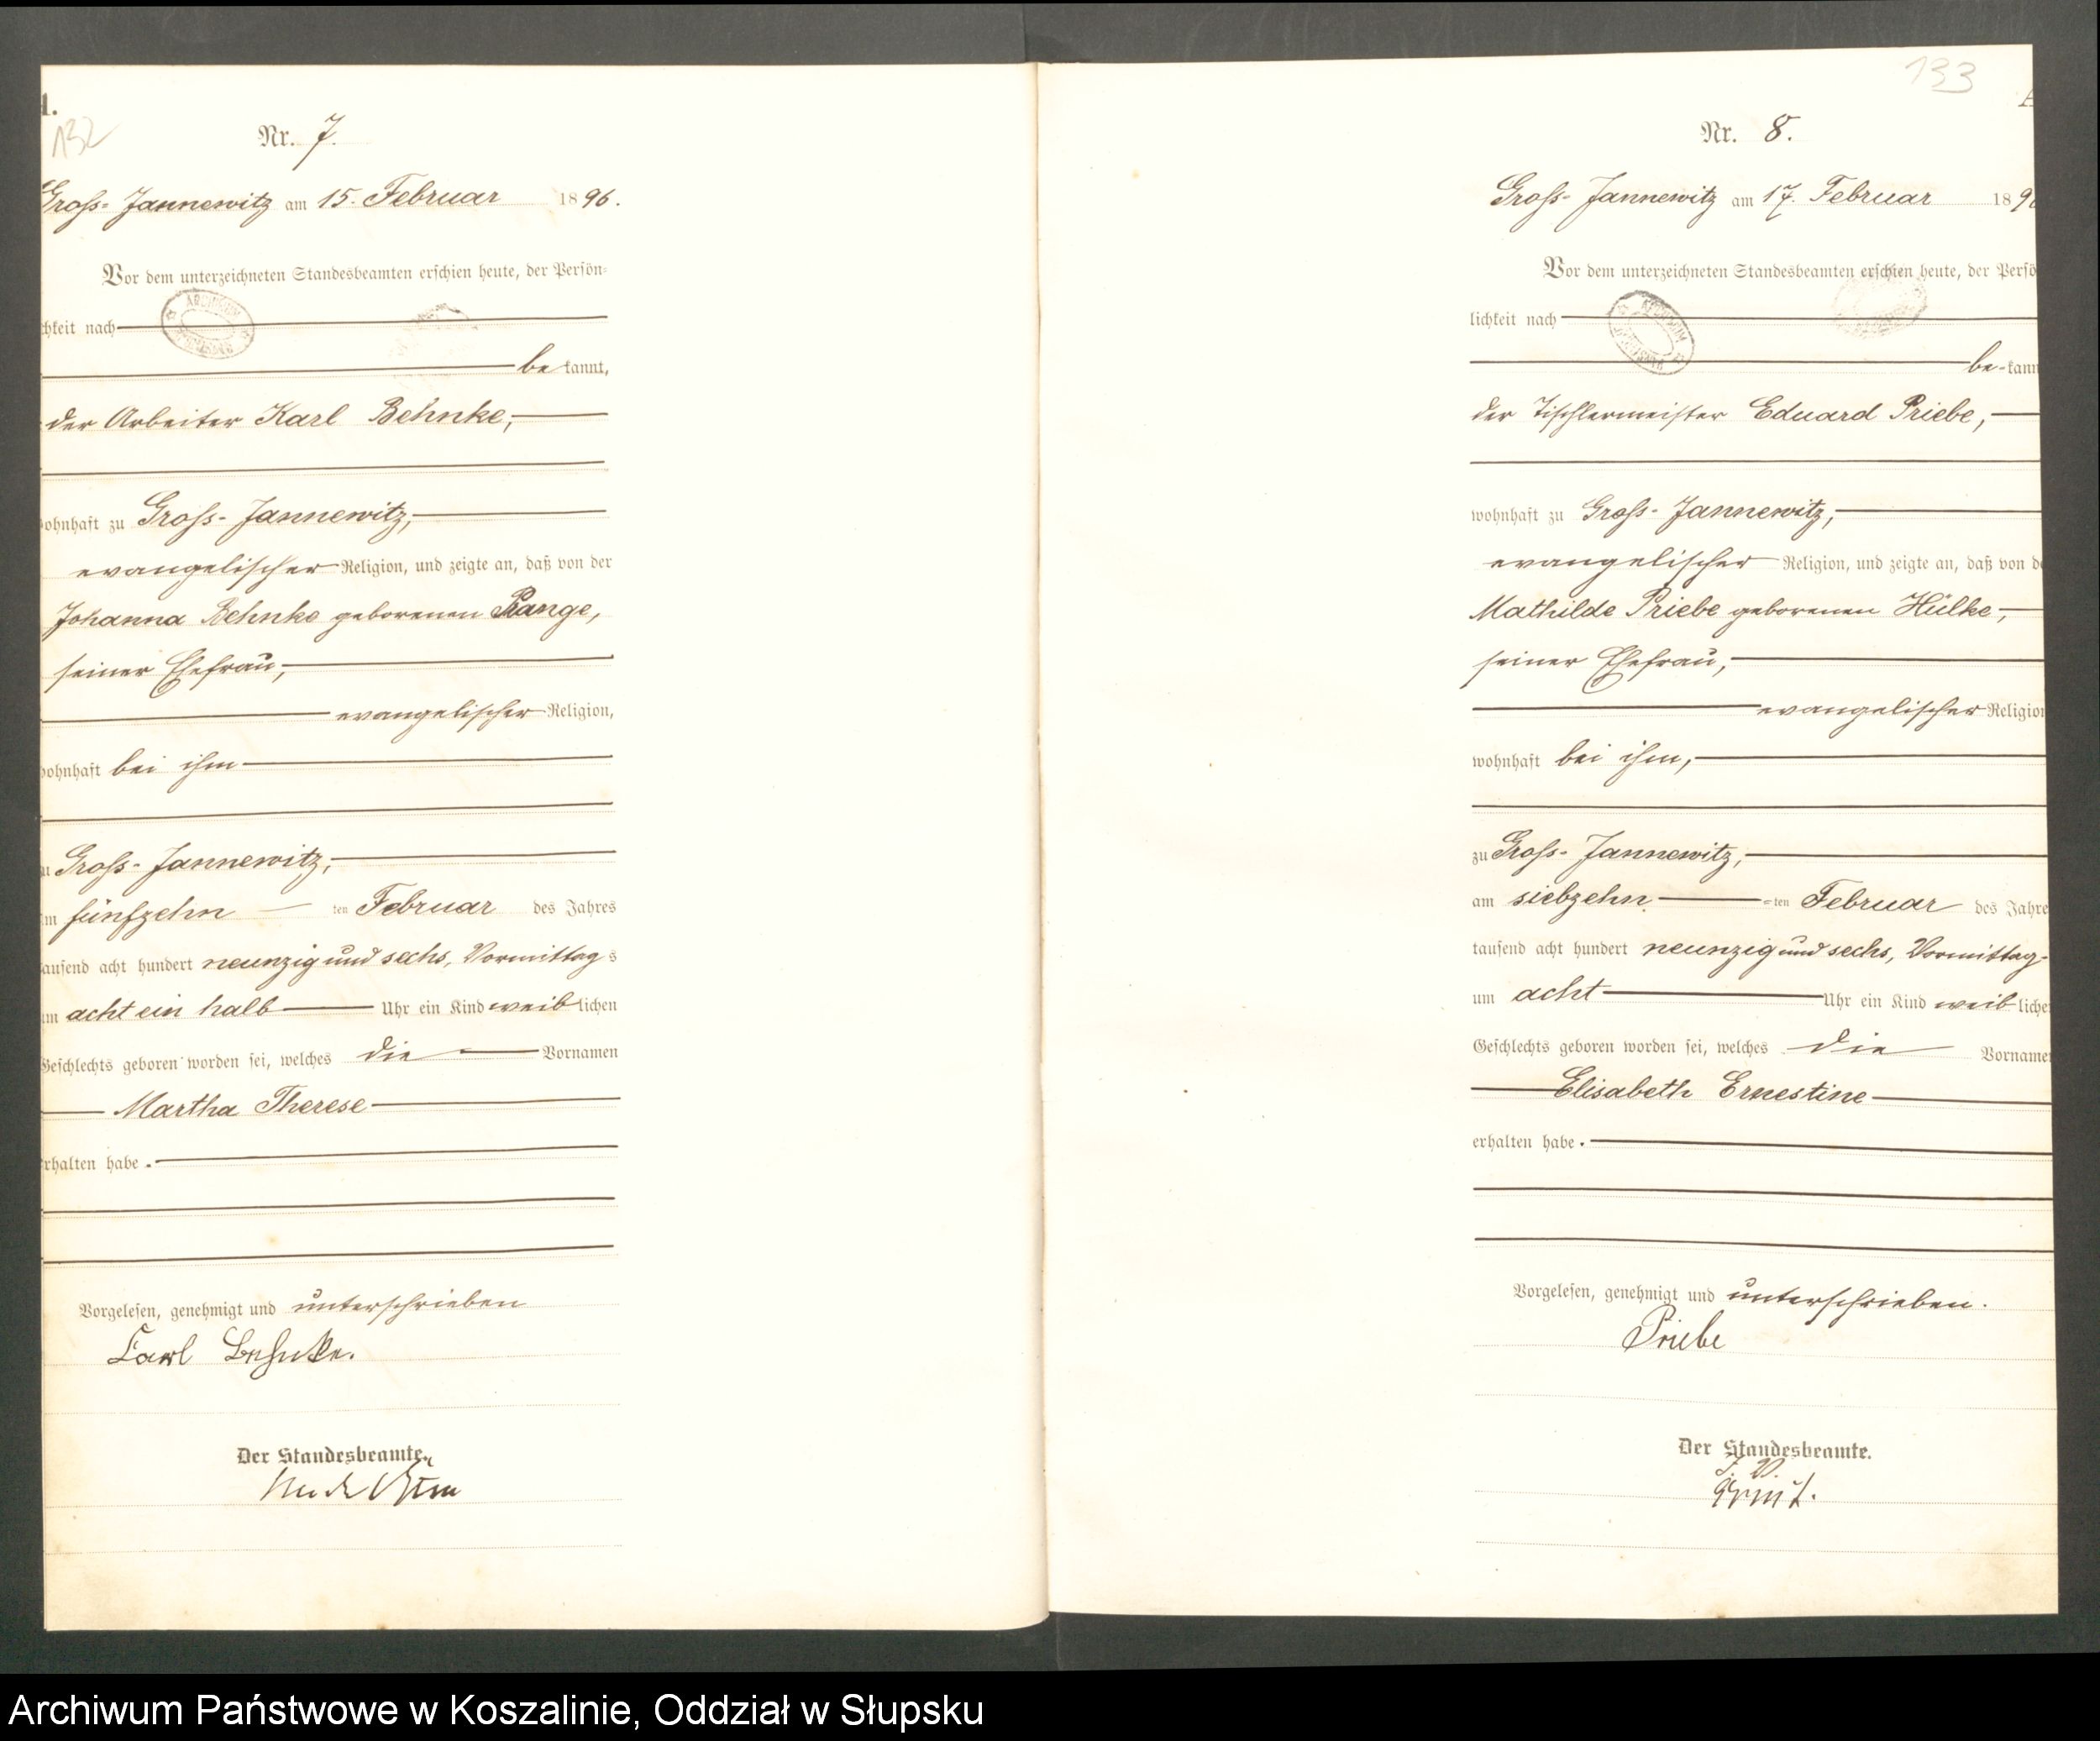 132
Nr. 7.
Groß-Jannewitz am 15. Februar 1896.
Vor dem unterzeichneten Standesbeamten erschien heute, der Persön-
chkeit nach
be kannt,
der Arbeiter Karl Behnke,
ohnhaft zu Groß-Jannewitz,
evangelischer Religion, und zeigte an, daß von der
Johanna Behnke geborenen Range,
seiner Ehefrau,
evangelischer Religion,
ohnhaft bei ihm
u Groß-Jannewitz,
m fünfzehn ten Februar des Jahres
ausend acht hundert neunzig und sechs, Vormittag s
um acht ein halb Uhr ein Kind weib lichen
Geschlechts geboren worden sei, welches die Vornamen
Martha Therese
rhalten habe.
Vorgelesen, genehmigt und unterschrieben
Carl Behnke.
Der Standesbeamte.
133
Nr. 8.
Groß-Jannewitz am 17. Februar 189
Vor dem unterzeichneten Standesbeamten erschien heute, der Persö
lichkeit nach
be-kann
der Tischlermeister Eduard Priebe,
wohnhaft zu Groß-Jannewitz,
evangelischer Religion, und zeigte an, daß von de
Mathilde Priebe geborenen Hülke,
seiner Ehefrau,
evangelischer Religion
wohnhaft bei ihm,
zu Groß-Jannewitz,
am siebzehn -ten Februar des Jahre
tausend acht hundert neunzig und sechs, Vormittag-
um acht Uhr ein Kind weib liche
Geschlechts geboren worden sei, welches die Vorname
Elisabeth Ernestine
erhalten habe.
Vorgelesen, genehmigt und unterschrieben.
Priebe
Der Standesbeamte.
J. V.
Archiwum Państwowe w Koszalinie, Oddział w Słupsku